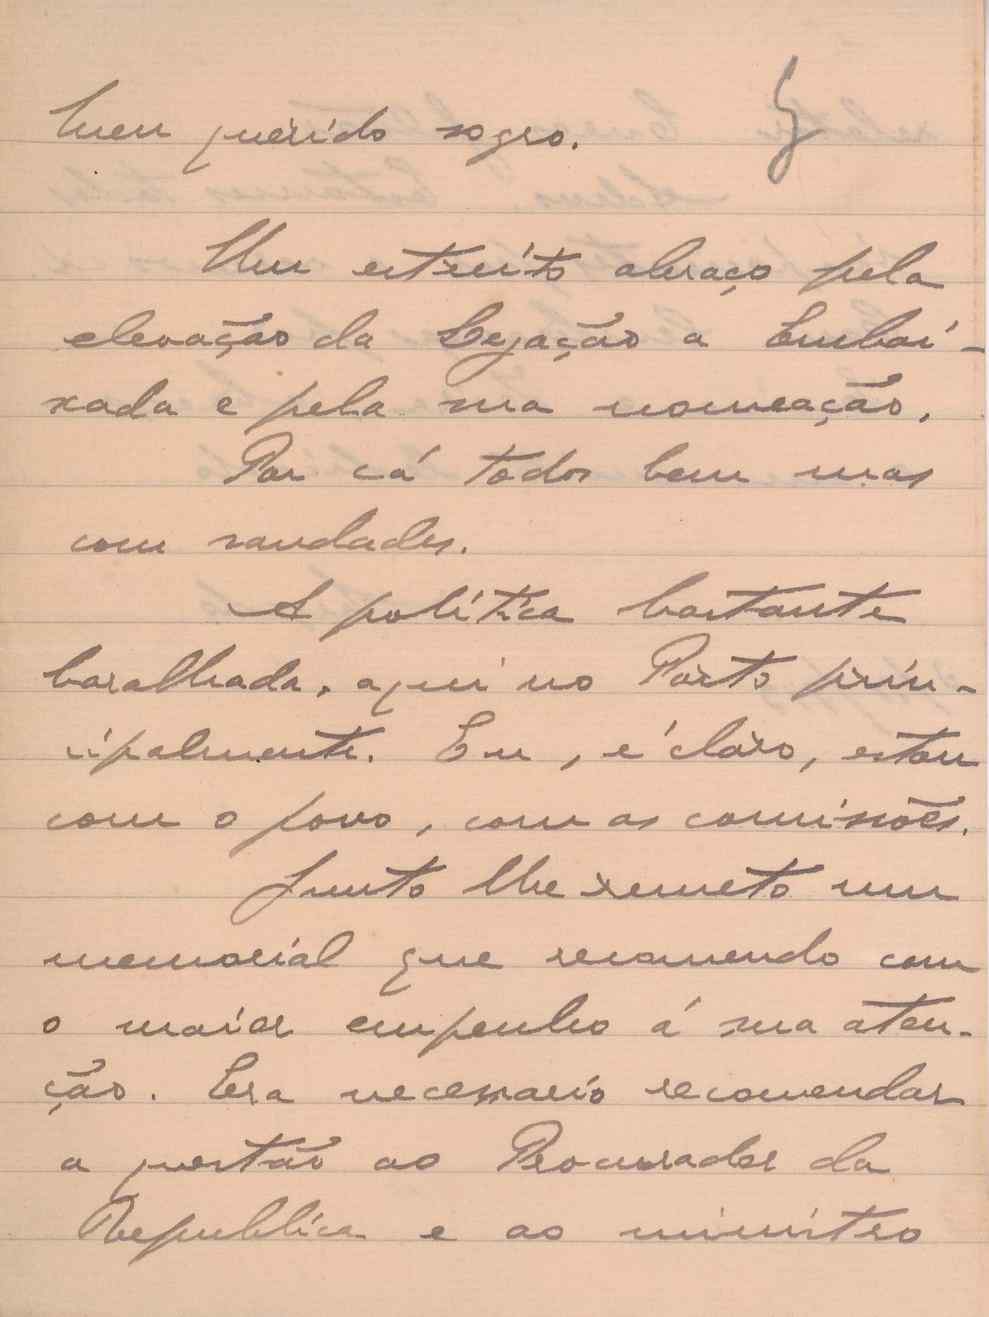 Meu querido sogro.
Um estreito abraço pela
elevação da Legação a Embai-
xada e pela sua nomeação.
Por cá todos bem mas
com saudades.
A política bastante
baralhada, aqui no Porto prin-
cipalmente. Eu, é claro, estou
com o povo, com as comissões.
Junto lhe remeto um
memorial que recomendo com
o maior empenho á sua aten-
ção. Era necessario recomendar
a questão ao Procurador da
Republica e ao ministro